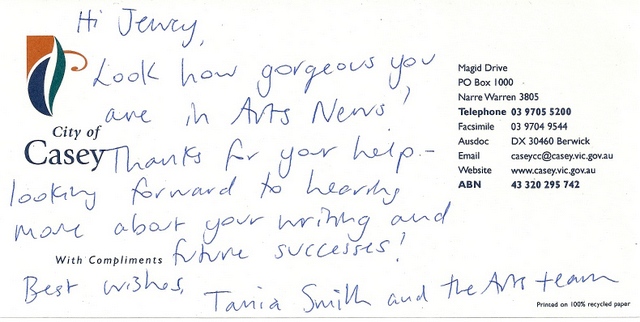 Hi Jewcy,
Look how gorgeous you
are in Arts News!
Thanks for your help -
looking forward to hearing
more about your writing and
future successes!
Best wishes,
Tania Smith and the Arts team
City of
Casey
With Compliments
Magid Drive
PO Box 1000
Narre Warren 3805
Telephone 03 9705 5200
Facsimile 03 9704 9544
Ausdoc DX 30460 Berwick
Email caseycc@casey.vic.gov.au
Website www.casey.vic.gov.au
ABN 43 320 295 742
Printed on 100% recycled paper